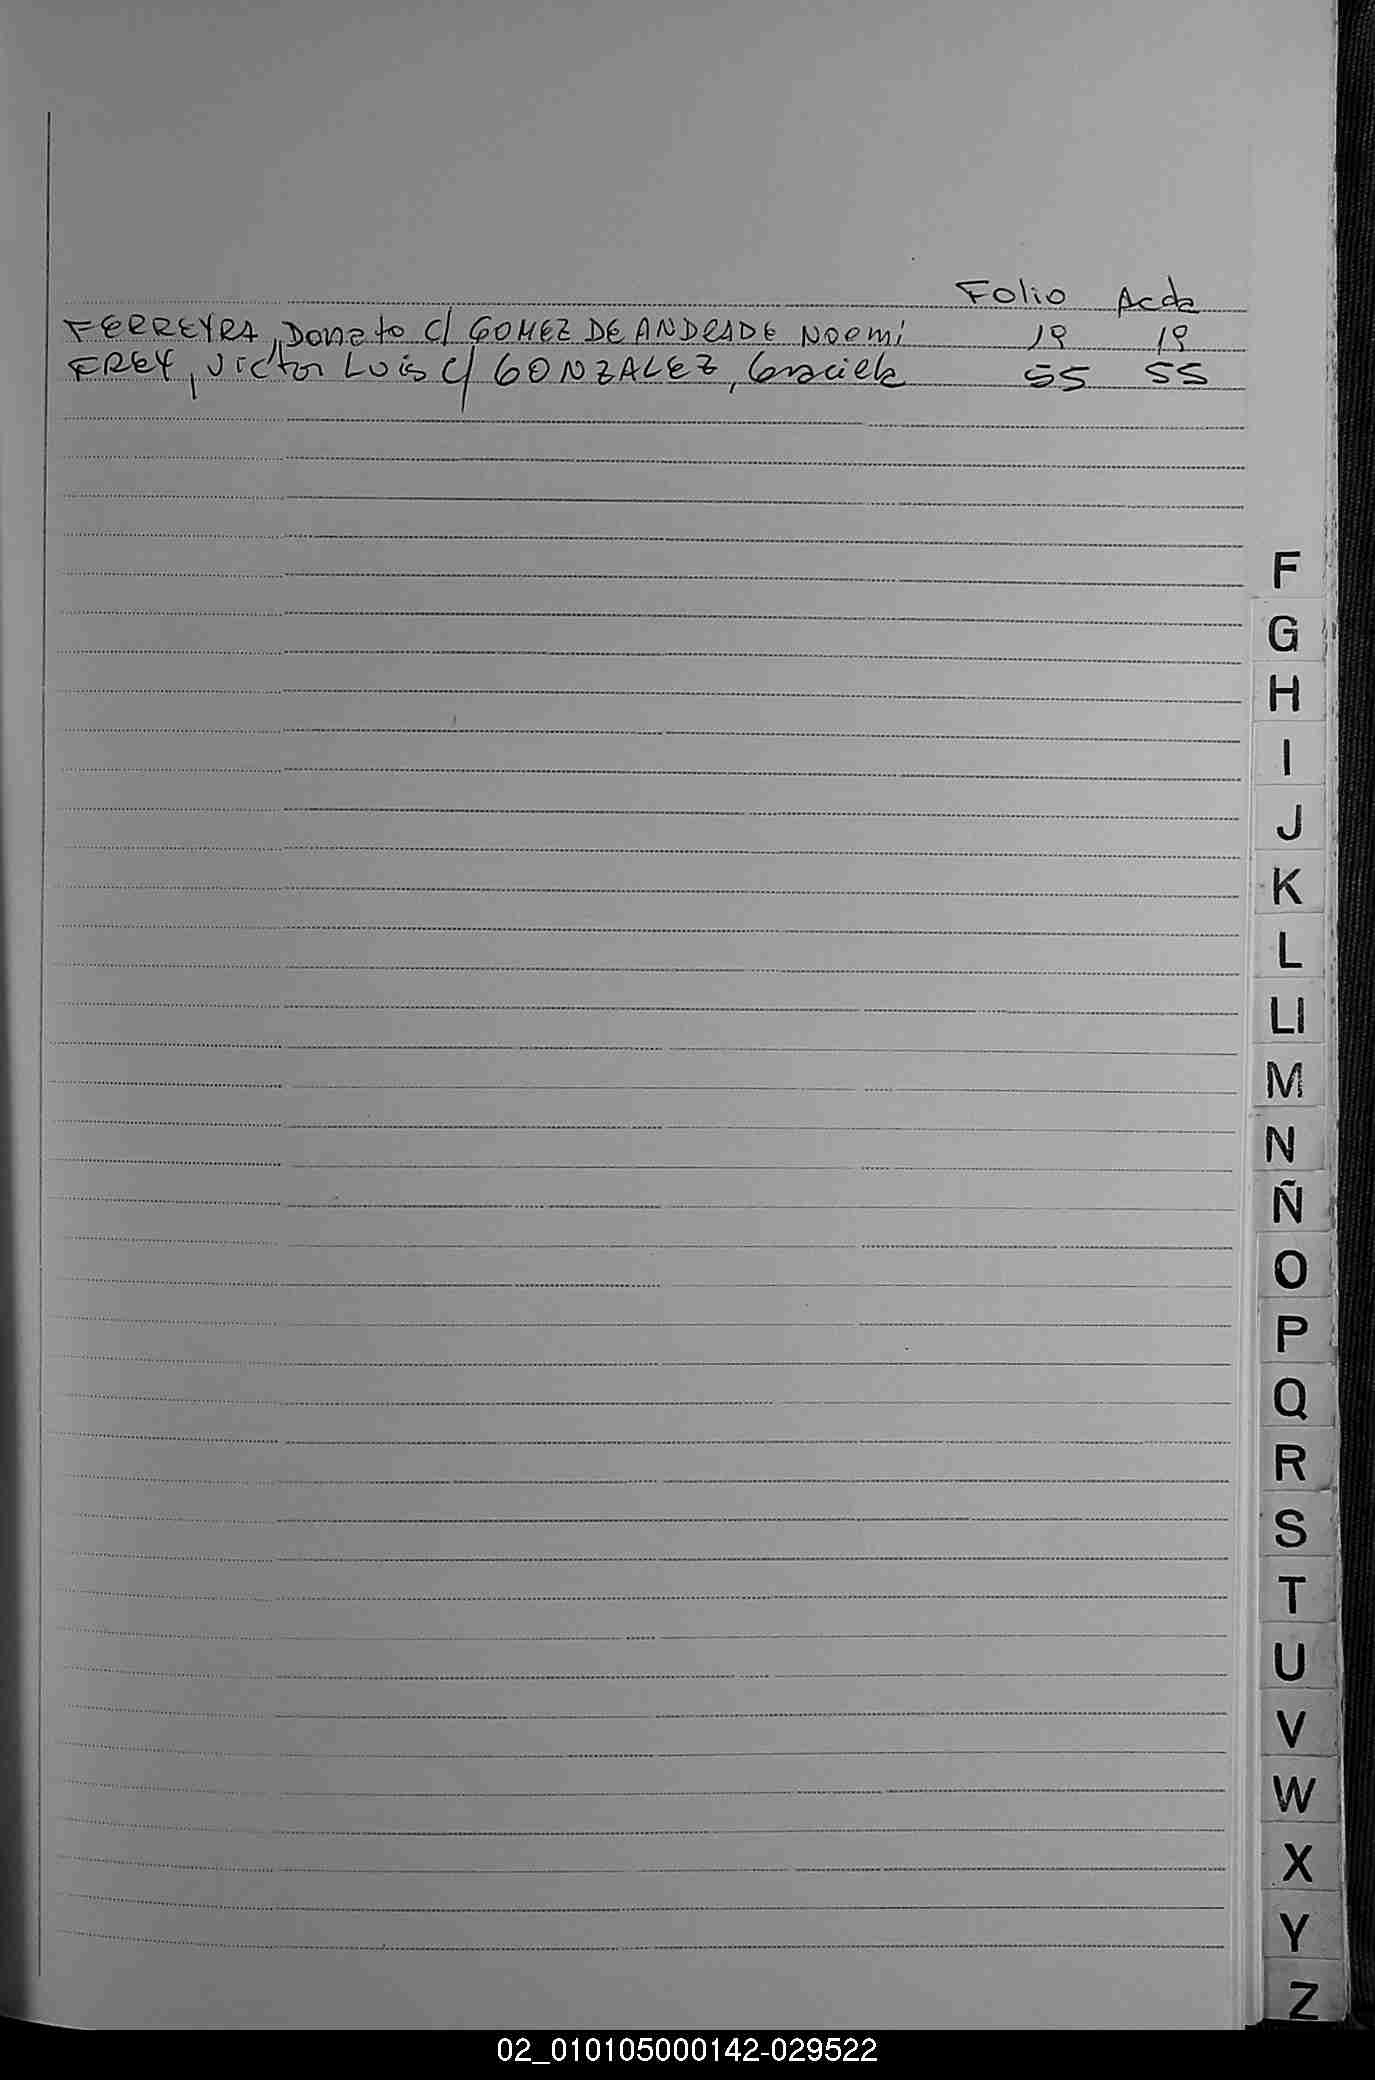 Folio Acda
FERREYRA, Donato c/ GOMEZ DE ANDRADE Noemi 19 19
FREY, Victor Luis c/ GONZALEZ, Graciela 55 55
F
G
H
I
J
K
L
Ll
M
N
Ñ
O
P
Q
R
S
T
U
V
W
X
Y
Z
02_010105000142-029522